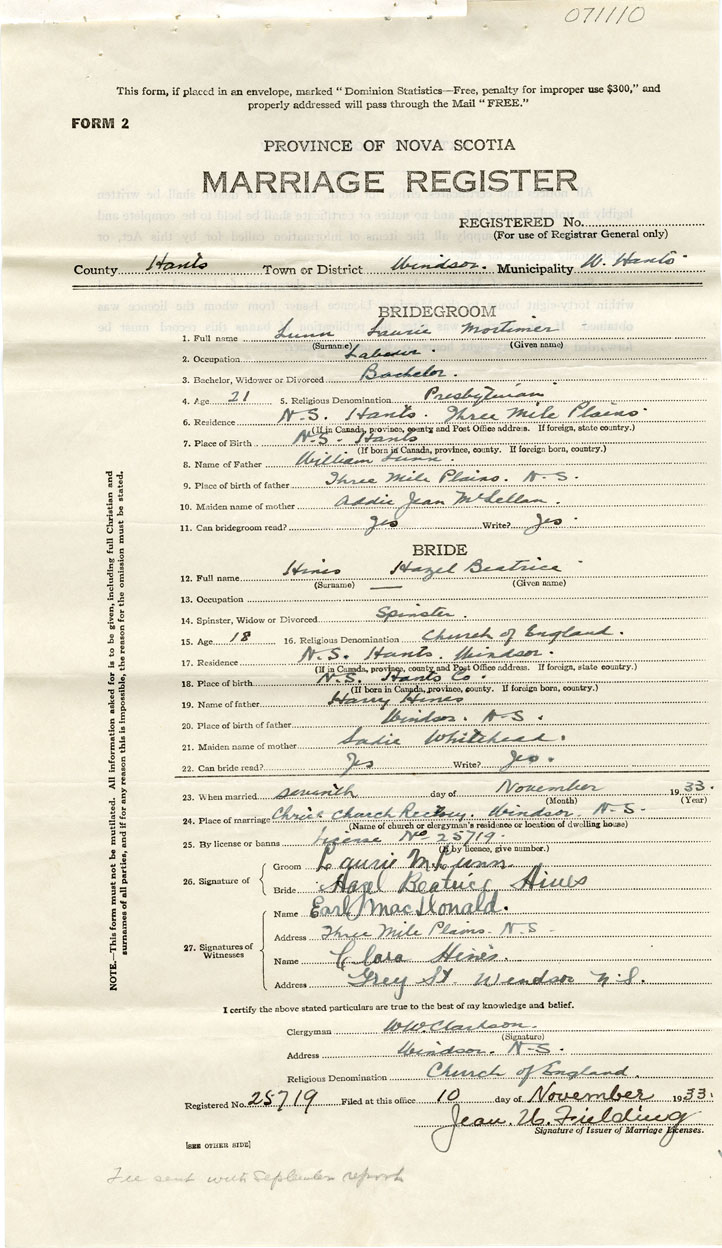 071110
This form, if placed in an envelope, marked "Dominion Statistics—Free, penalty for improper use $300," and
properly addressed will pass through the Mail "FREE."
FORM 2
PROVINCE OF NOVA SCOTIA
MARRIAGE REGISTER
REGISTERED No.
(For use of Registrar General only)
County Hants Town or District Windsor. Municipality W. Hants
BRIDEGROOM
1. Full name Lunn Laurie Mortimer
(Surname) (Given name)
2. Occupation Labour.
3. Bachelor, Widower or Divorced Bachelor.
4. Age 21 5. Religious Denomination Presbyterian
6. Residence N.S. Hants. Three Mile Plains.
(If in Canada, province, county and Post Office address. If foreign, state country.)
7. Place of Birth N.S. Hants
(If born in Canada, province, county. If foreign born, country.)
8. Name of Father William Lunn.
9. Place of birth of father Three Mile Plains. N.S.
10. Maiden name of mother Addie Jean McLellan.
11. Can bridegroom read? Yes Write? Yes.
BRIDE
12. Full name Hines Hazel Beatrice
(Surname) (Given name)
13. Occupation —
14. Spinster, Widow or Divorced Spinster.
15. Age 18 16. Religious Denomination Church of England.
17. Residence N.S. Hants. Windsor.
(If in Canada, province, county and Post Office address. If foreign, state country.)
18. Place of birth N.S. Hants Co.
(If born in Canada, province, county. If foreign born, country.)
19. Name of father Harry Hines
20. Place of birth of father Windsor. N.S.
21. Maiden name of mother Sadie Whitehead.
22. Can bride read? Yes Write? Yes.
23. When married seventh day of November 1933.
(Month) (Year)
24. Place of marriage Christ Church Rectory, Windsor. N.S.
(Name of church or clergyman's residence or location of dwelling house)
25. By license or banns License No 25719.
(If by licence, give number.)
26. Signature of
Groom Laurie M Lunn
Bride Hazel Beatrice Hines
27. Signatures of Witnesses
Name Earl MacDonald.
Address Three Mile Plains. N.S.
Name Clara Hines.
Address Grey St. Windsor N.S.
NOTE.—This form must not be mutilated. All information asked for is to be given, including full Christian and
surnames of all parties, and if for any reason this is impossible, the reason for the omission must be stated.
I certify the above stated particulars are true to the best of my knowledge and belief.
Clergyman W.W. Clarkson.
(Signature)
Address Windsor. N.S.
Religious Denomination Church of England.
Registered No. 25719 Filed at this office 10 day of November 1933.
Jean. W. Fielding
Signature of Issuer of Marriage Licenses.
[SEE OTHER SIDE]
Fee sent with September report